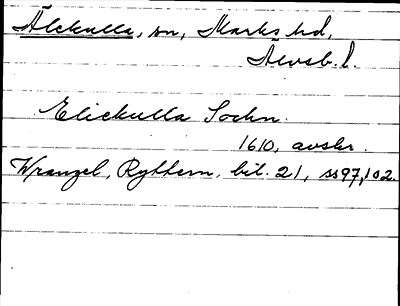 Älekulla, sn, Marks hd,
Älvsb. l.
Elickulla Sochn.
1610, avskr.
Wrangel, Ryttern, bil. 21, ss 97, 102.